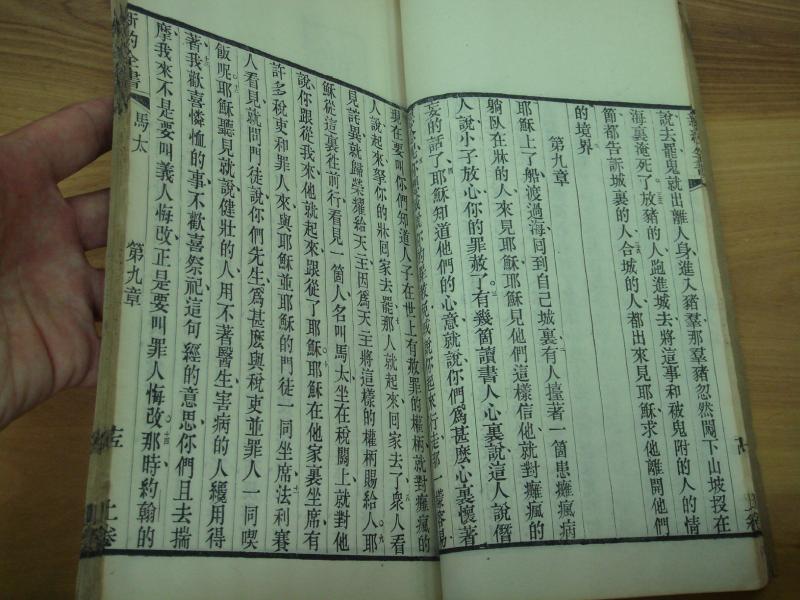 說去罷鬼就出離人身進入豬羣那羣豬忽然闖下山坡投在
海裏淹死了放豬的人跑進城去將這事和被鬼附的人的情
節都告訴城裏的人合城的人都出來見耶穌求他離開他們
的境界
第九章
耶穌上了船渡過海回到自己城裏有人擡著一箇患癱瘋病
躺臥在牀的人來見耶穌耶穌見他們這樣信他就對癱瘋的
人說小子放心你的罪赦了有幾箇讀書人心裏說這人說僭
妄的話了耶穌知道他們的心意就說你們爲甚麽心裏懷著
現在要叫你們知道人子在世上有赦罪的權柄就對癱瘋的
人說起來拏你的牀回家去罷那人就起來回家去了衆人看
見詫異就歸榮耀給天主因爲天主將這樣的權柄賜給人耶
穌從這裏往前行看見一箇人名叫馬太坐在稅關上就對他
說你跟從我來他就起來跟從了耶穌耶穌在他家裏坐席有
許多稅吏和罪人來與耶穌並耶穌的門徒一同坐席法利賽
人看見就問門徒說你們先生爲甚麽與稅吏並罪人一同喫
飯呢耶穌聽見就說健壯的人用不著醫生害病的人纔用得
著我歡喜憐恤的事不歡喜祭祀這句經的意思你們且去揣
摩我來不是要叫義人悔改正是要叫罪人悔改那時約翰的
新約全書
馬太
第九章